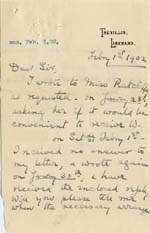 TREVILLIS,
LISKEARD.
Feby 1st 1902
Dear Sir
I wrote to Miss Radcliffe
as requested on Jany 29th
asking her if it would be
convenient to receive W.
on Sat Feby 1st
I received no answer to
my letter, & wrote again
on Jany 30th, & have
received the enclosed reply
Will you please tell me
when the necessary arrange